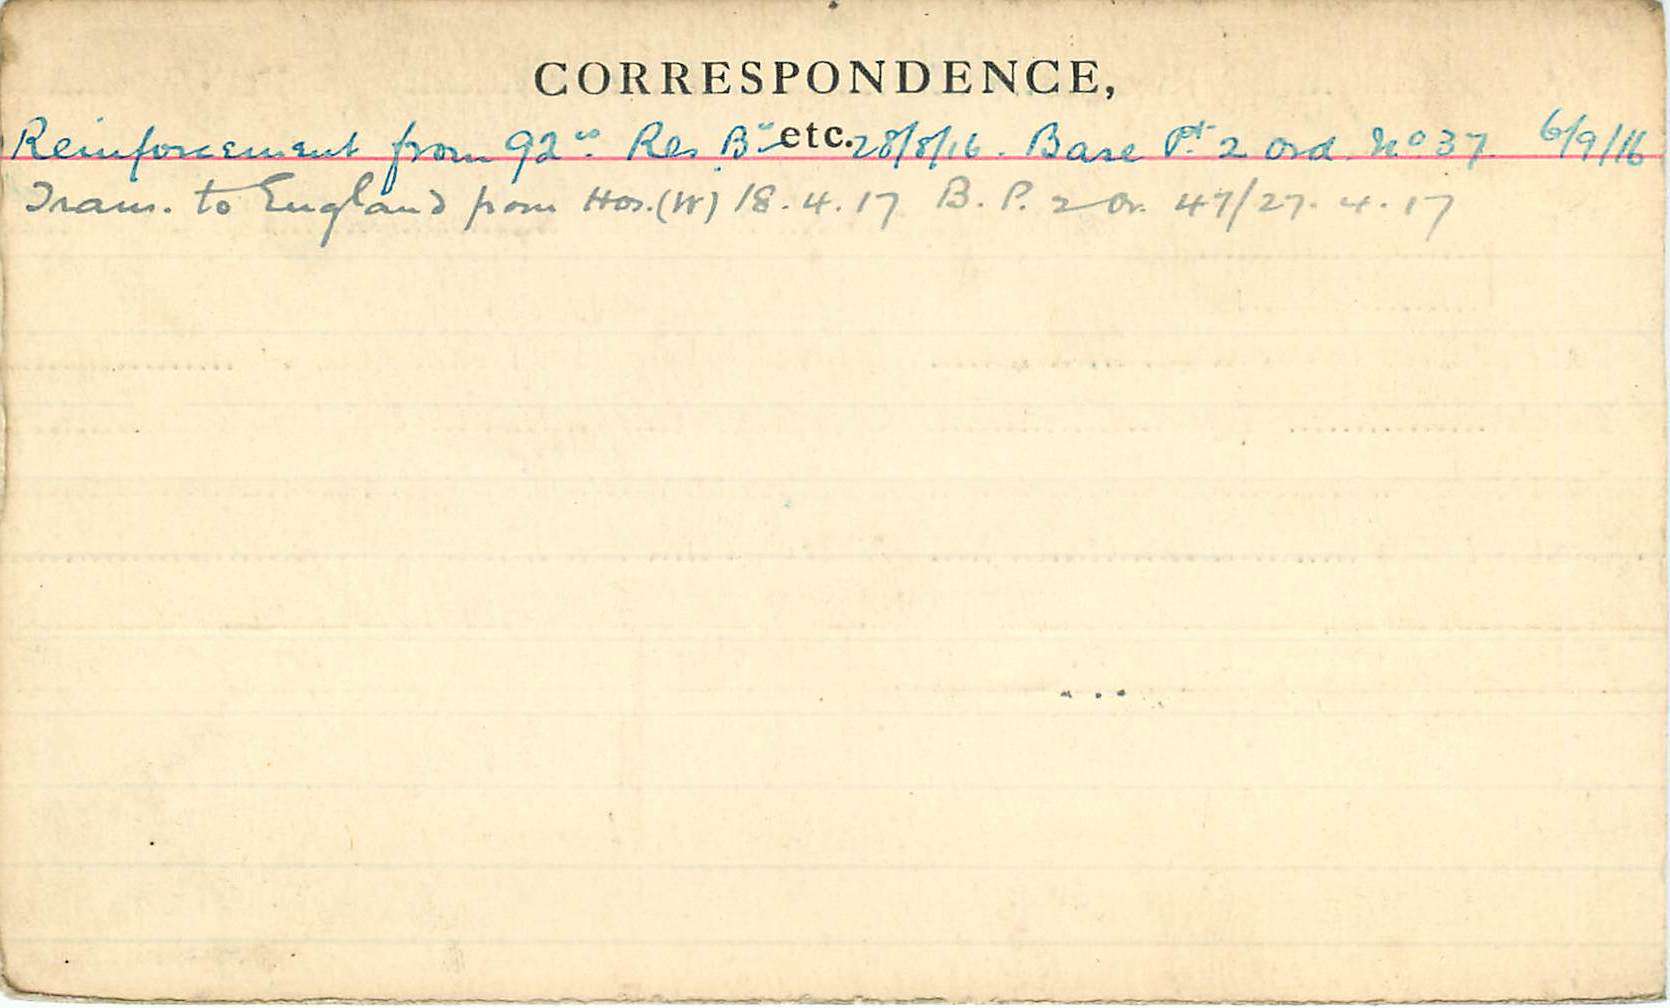 CORRESPONDENCE,
etc.
Reinforcement from 92nd Res Bn 28/8/16. Base Pt 2 ord. No 37. 6/9/16
Trans. to England from Hos. (W) 18.4.17 B.P. 2 Or. 47/27.4.17